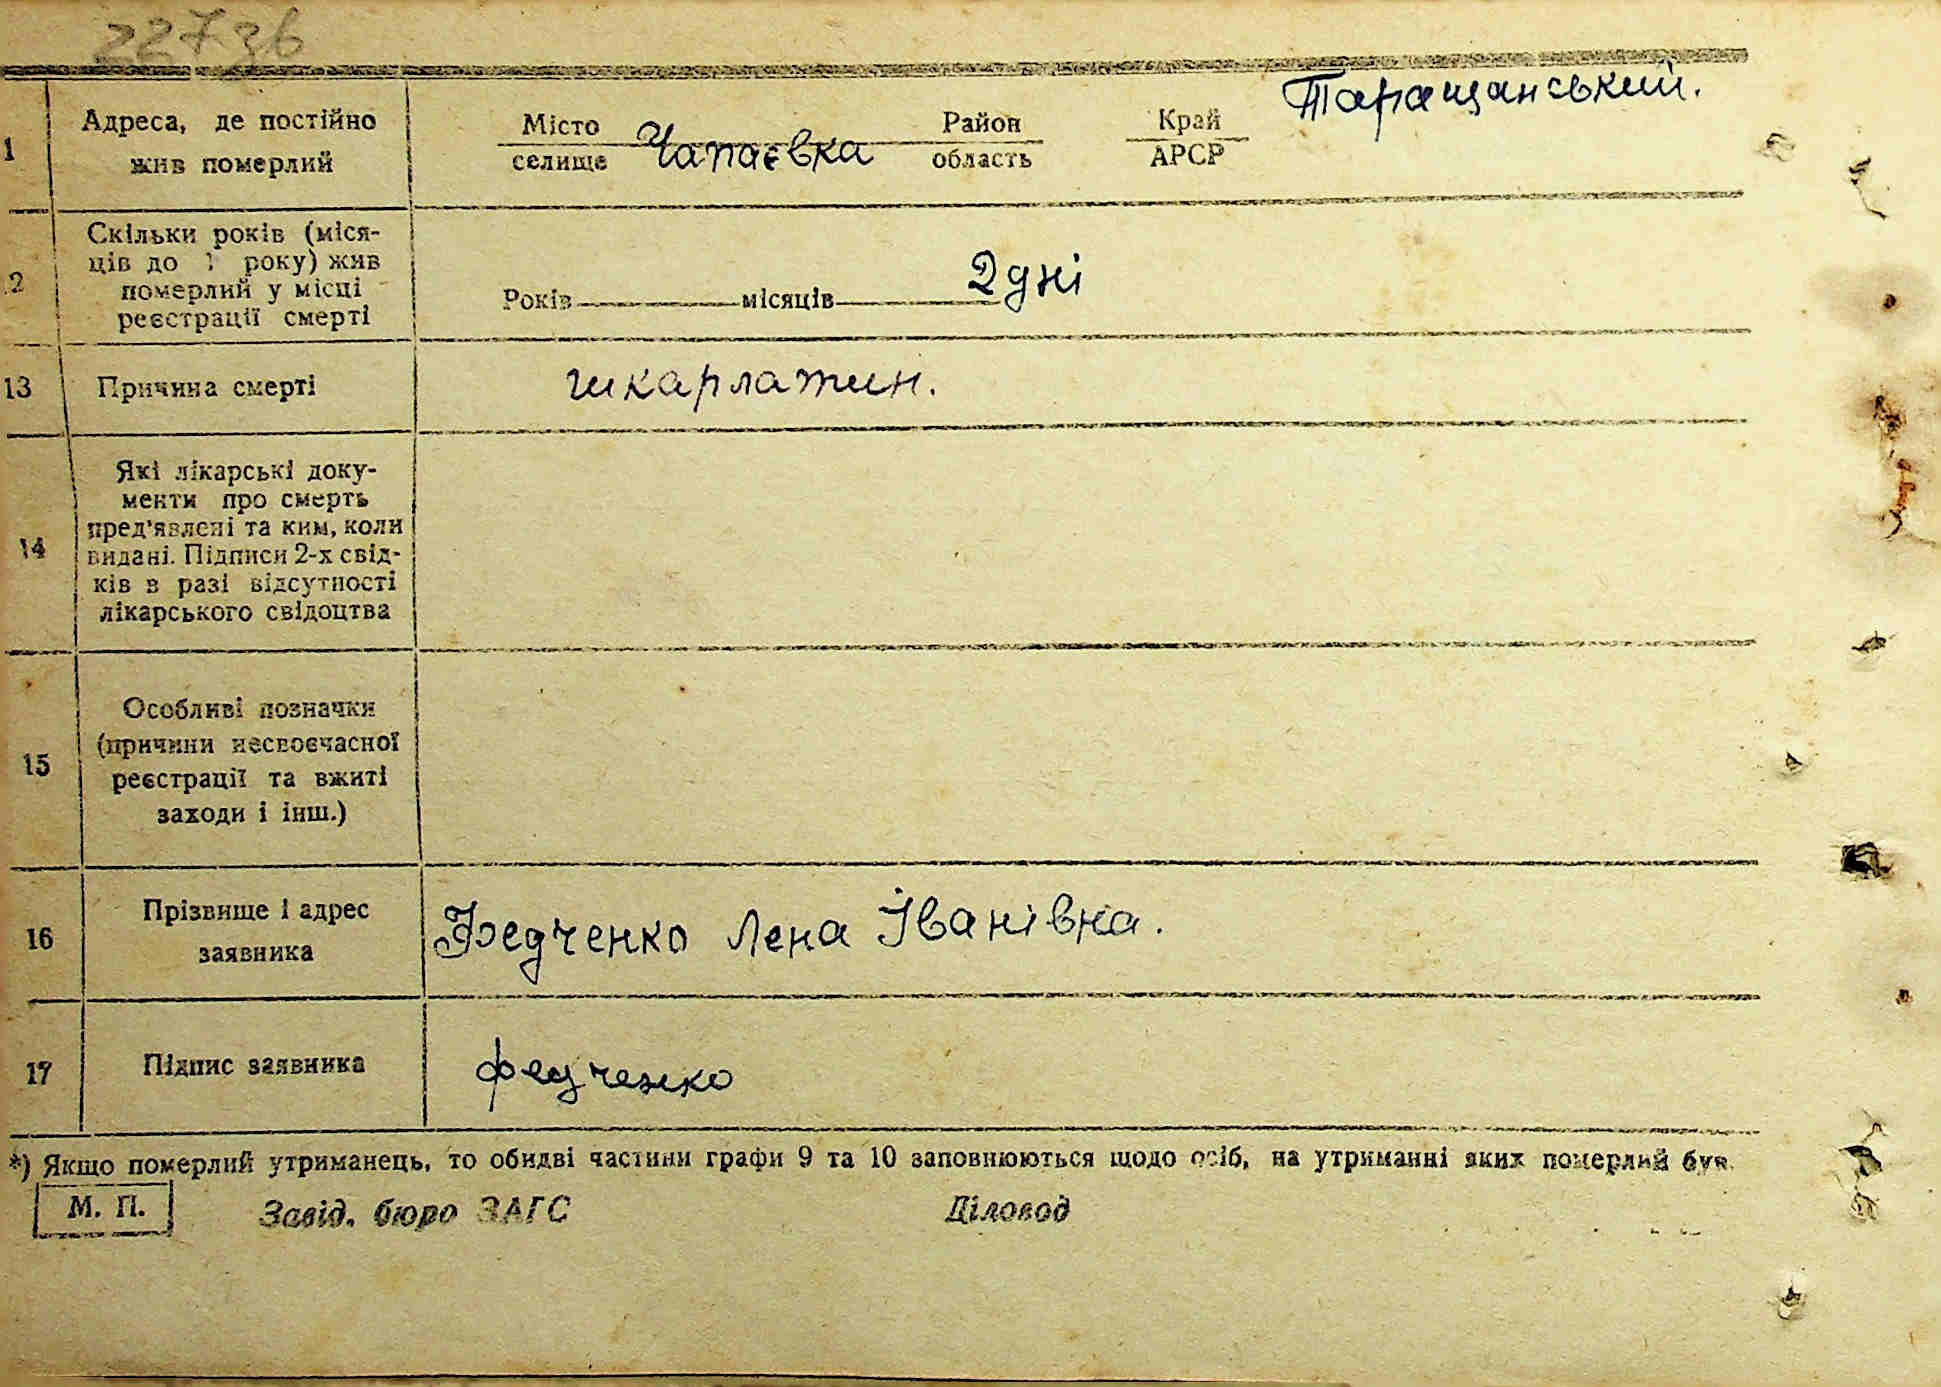 227зб
Таращанський.
1 Адреса, де постійно
жив померлий
Місто
селище Чапаєвка Район
область
Край
АРСР
2 Скільки років (міся-
ців до 1 року) жив
померлий у місці
реєстрації смерті
Років місяців 2 дні
13 Причина смерті шкарлатин.
14 Які лікарські доку-
менти про смерть
пред'явлені та ким, коли
видані. Підписи 2-х свід-
ків в разі відсутності
лікарського свідоцтва
15 Особливі позначки
(причини несвоєчасної
реєстрації та вжиті
заходи і інш.)
16 Прізвище і адрес
заявника
Федченко Лена Іванівна.
17 Підпис заявника Федченко
*) Якщо померлий утриманець, то обидві частини графи 9 та 10 заповнюються щодо осіб, на утриманні яких померлий був.
М. П. Завід. бюро ЗАГС Діловод